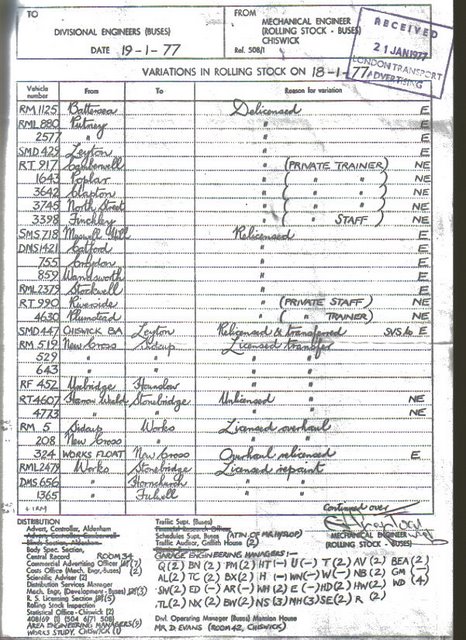 TO
DIVISIONAL ENGINEERS (BUSES)
DATE 19-1-77
FROM
MECHANICAL ENGINEER
(ROLLING STOCK - BUSES)
CHISWICK
Ref. 508/1
RECEIVED
21 JAN 1977
LONDON TRANSPORT
ADVERTISING
VARIATIONS IN ROLLING STOCK ON 18-1-77
Vehicle number From To Reason for variation
RM 1125 Battersea Delicensed E
RML 880 Putney " E
2577 " " E
SMD 429 Leyton " E
RT 917 Camberwell " (PRIVATE TRAINER) NE
1643 Poplar " ( " " ) NE
3642 Clapton " ( " " ) NE
3745 North Street " ( " " ) NE
3398 Finchley " ( " STAFF ) NE
SMS 718 Muswell Hill Relicensed E
DMS 1421 Catford " E
755 Croydon " E
859 Wandsworth " E
RML 2379 Stockwell " E
RT 990 Riverside " (PRIVATE STAFF) NE
4630 Plumstead " ( " TRAINER) NE
SMD 447 CHISWICK Leyton Relicensed & transferred SVS to E
RM 519 New Cross Sidcup Licensed transfer
529 " " " "
643 " " " "
RF 452 Uxbridge Hounslow " "
RT 4607 Harrow Weald Stonebridge Unlicensed " NE
4773 " " " " NE
RM 5 Sidcup Works Licensed overhaul
208 New Cross " " "
324 WORKS FLOAT New Cross Overhaul relicensed E
RML 2479 Works Stonebridge Licensed repaint
DMS 656 " Hornchurch " "
1365 " Fulwell " "
Continued over
MECHANICAL ENGINEER
(ROLLING STOCK - BUSES)
DISTRIBUTION
Advert. Controller, Aldenham
Body Spec. Section,
Central Record ROOM 34
Commercial Advertising Officer (7)
Costs Office (Mech. Eng.-Buses) (2)
Scientific Adviser (2)
Distribution Can Services Manager
Mech. Engr. (Development - Buses) (3)
R. S. Licensing Section (5)
Rolling Stock Inspection
Statistical Office (2)
408/69 (1) 504 6/71 508
AREA ENGINEERING MANAGERS (9)
WORKS STUDY, CHISWICK (1)
Traffic Supt. (Buses)
Schedules Supt. (Buses) (ATTN OF MR HYSLOP)
Traffic Auditor, Griffith House (2)
GARAGE ENGINEERING MANAGERS:-
Q (2) BN (2) PM (2) HT (-) U (-) T (2) AV (2) BEA (2)
AL (2) TC (2) BX (2) H (-) WN (-) W (-) NB (2) GM (-)
SW (2) ED (-) AR (-) WH (2) E (-) HD (2) HW (2) WD (4)
TL (2) NX (2) BW (2) NS (3) MH (3) SE (2) R (2)
Divl. Operating Manager (Buses) Mansion House
MR D. EVANS (ROOM 42, CHISWICK)